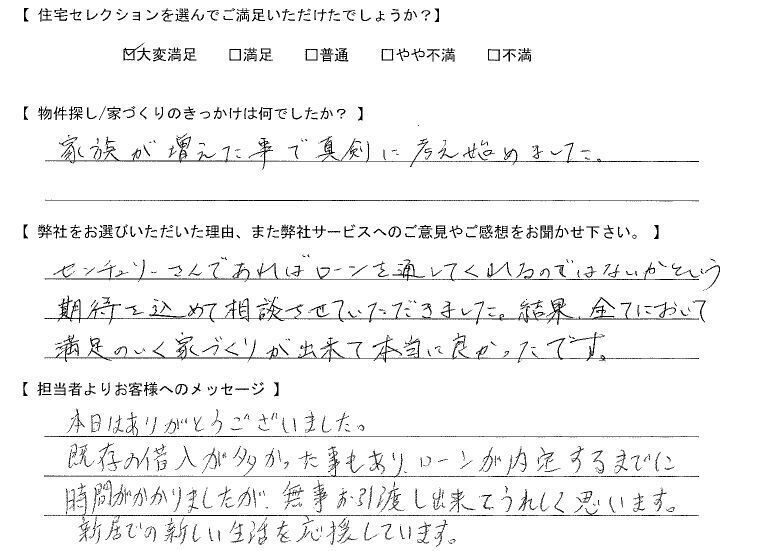 【 住宅セレクションを選んでご満足いただけたでしょうか？】
☑大変満足 □満足 □普通 □やや不満 □不満
【 物件探し/家づくりのきっかけは何でしたか？ 】
家族が増えた事で真剣に考え始めました。
【 弊社をお選びいただいた理由、また弊社サービスへのご意見やご感想をお聞かせ下さい。 】
センチュリーさんであればローンを通してくれるのではないかという
期待を込めて相談させていただきました。結果、全てにおいて
満足のいく家づくりが出来て本当に良かったです。
【 担当者よりお客様へのメッセージ 】
本日はありがとうございました。
既存お借入が多かった事もあり、ローンが内定するまでに
時間がかかりましたが、無事お引渡し出来てうれしく思います。
新居での新しい生活を応援しています。